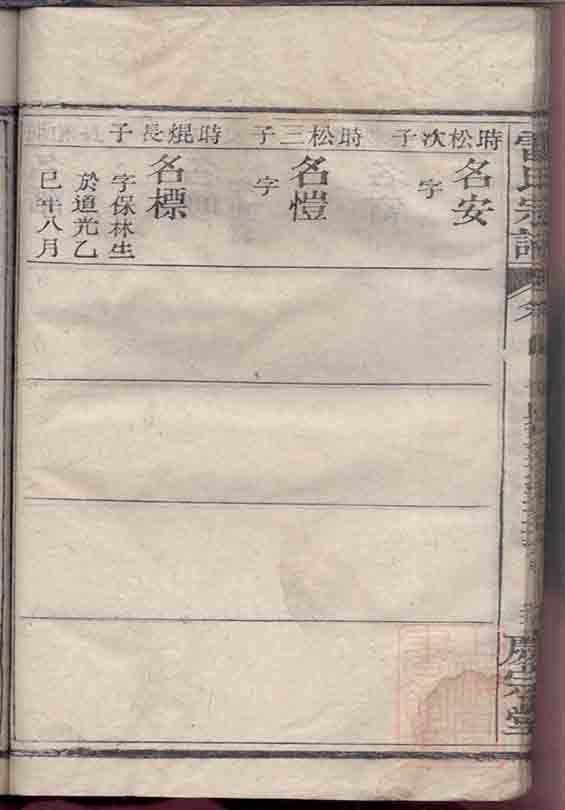 時松次子
名安
字
時松三子
名愷
字
時焜長子
名標
字保林生
於道光乙
巳年八月
氏宗譜
宗堂